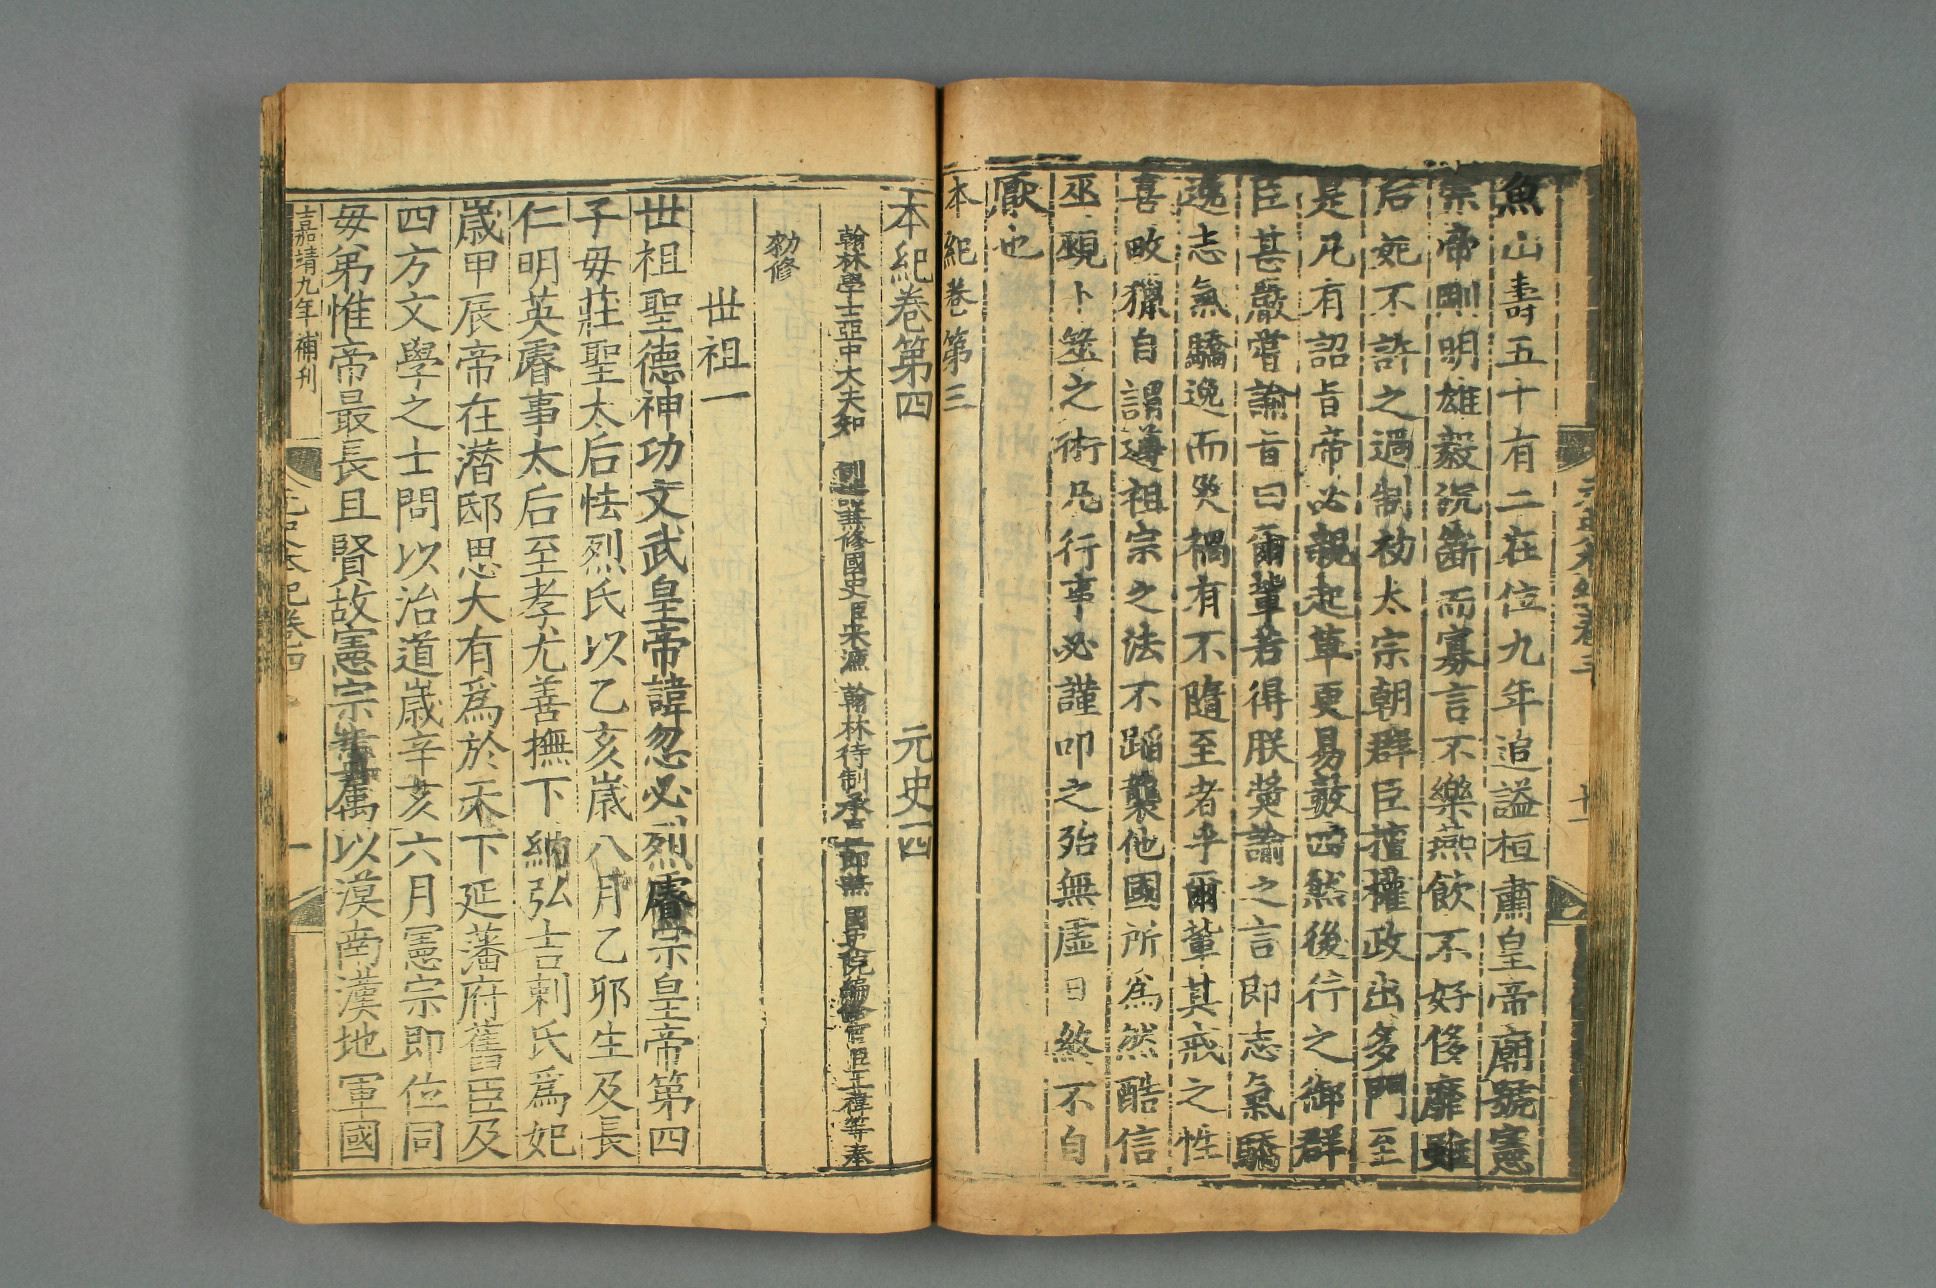 魚山壽五十有二在位九年追謚桓肅皇帝廟號憲
宗帝剛明雄毅沉斷而寡言不樂燕飲不好侈靡雖
后妃不許之過制初太宗朝群臣擅權政出多門至
是凡有詔旨帝必親起草更易數四然後行之御群
臣甚嚴嘗諭旨曰爾輩若得朕奬諭之言即志氣驕
逸志氣驕逸而災禍有不隨至者乎爾輩其戒之性
喜畋獵自謂遵祖宗之法不蹈襲他國所爲然酷信
巫覡卜筮之術凡行事必謹叩之殆無虛日終不自
厭也
本紀卷第三
本紀卷第四 元史四
翰林學士亞中大夫知制誥兼修國史臣宋濂 翰林待制承直郎兼國史院編修官臣王禕等奉
勑修
世祖一
世祖聖德神功文武皇帝諱忽必烈睿宗皇帝第四
子母莊聖太后怯烈氏以乙亥歲八月乙卯生及長
仁明英睿事太后至孝尤善撫下納弘吉剌氏爲妃
歲甲辰帝在潛邸思大有爲於天下延藩府舊臣及
四方文學之士問以治道歲辛亥六月憲宗即位同
母弟惟帝最長且賢故憲宗盡屬以漠南漢地軍國
嘉靖九年補刊 元史本紀卷四 一